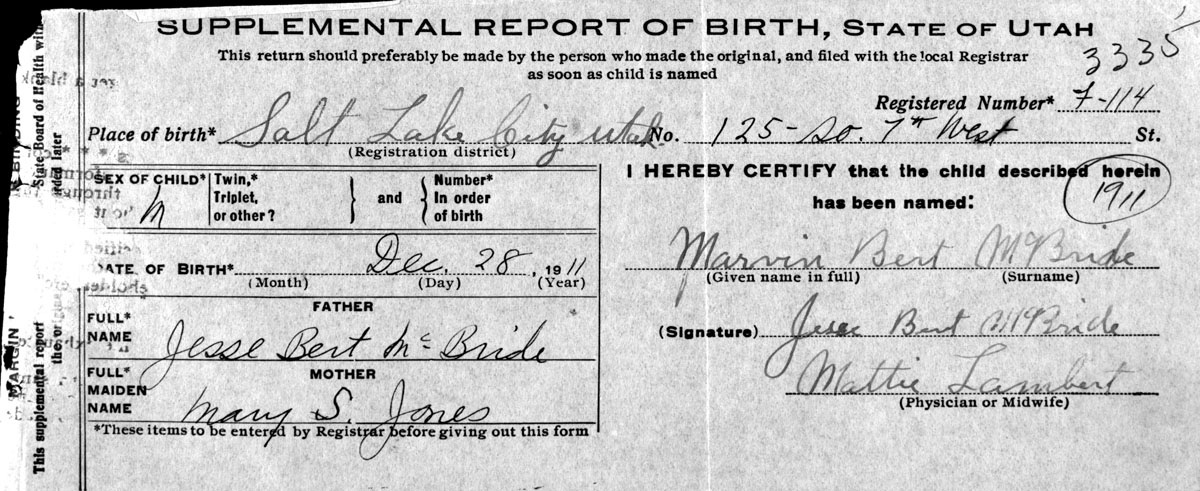 SUPPLEMENTAL REPORT OF BIRTH, STATE OF UTAH
This return should preferably be made by the person who made the original, and filed with the local Registrar
as soon as child is named
3335
Registered Number* 7-114
Place of birth* Salt Lake City Utah No. 125 - So. 7th West St.
(Registration district)
SEX OF CHILD* M
Twin,* Triplet, or other? } and { Number* In order of birth
DATE OF BIRTH* Dec. 28, 1911
(Month) (Day) (Year)
FATHER
FULL* NAME Jesse Bert McBride
MOTHER
FULL* MAIDEN NAME Mary S. Jones
*These items to be entered by Registrar before giving out this form
I HEREBY CERTIFY that the child described herein
has been named:
1911
Marvin Bert McBride
(Given name in full) (Surname)
(Signature) Jesse Bert McBride
Mattie Lambert
(Physician or Midwife)
MARGIN
BINDING
This supplemental report
State Board of Health with